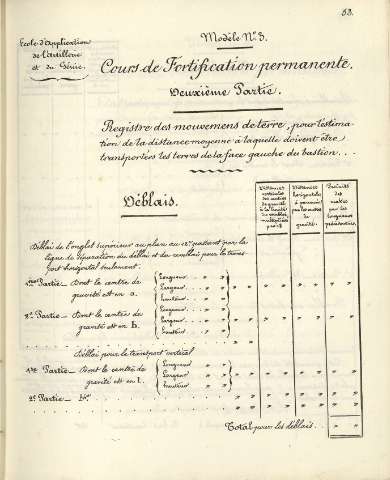 53.
École d'Application
de l'Artillerie
et du Génie.
Modèle N.° 3.
Cours de Fortification permanente.
Deuxième Partie.
Registre des mouvemens de terre, pour l'estima-
tion de la distance moyenne à laquelle doivent être
transportées les terres de la face gauche du bastion...
Déblais.
Distances
verticales
Distances
horizontales
à parcourir
gravité.
Produits
des
cubes
par les
longueurs
précédentes.
Déblai de l'onglet supérieur au plan au 12.e passant par la
ligne de séparation du déblai et du remblai pour le trans-
port horizontal seulement.
1.ère Partie — Dont le centre de
gravité est en a.
Longueur " "
Largeur " "
hauteur " "
" " " " " " " "
2.e Partie — Dont le centre de
gravité est en b.
Longueur " "
Largeur " "
hauteur " "
" " " " " " " "
Déblai pour le transport vertical
1.ère Partie — Dont le centre de
gravité est en l.
Longueur " "
Largeur " "
hauteur " "
" " " " " " " "
2.e Partie — " " " " " " " "
Total pour les déblais.. " "